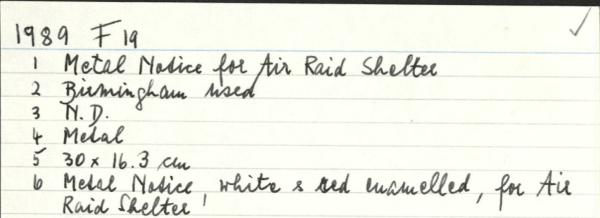 1989 F19
1 Metal Notice for Air Raid Shelter
2 Birmingham used
3 N.D.
4 Metal
5 30 x 16.3 cm
6 Metal Notice, white & red enamelled, for Air
Raid Shelter'